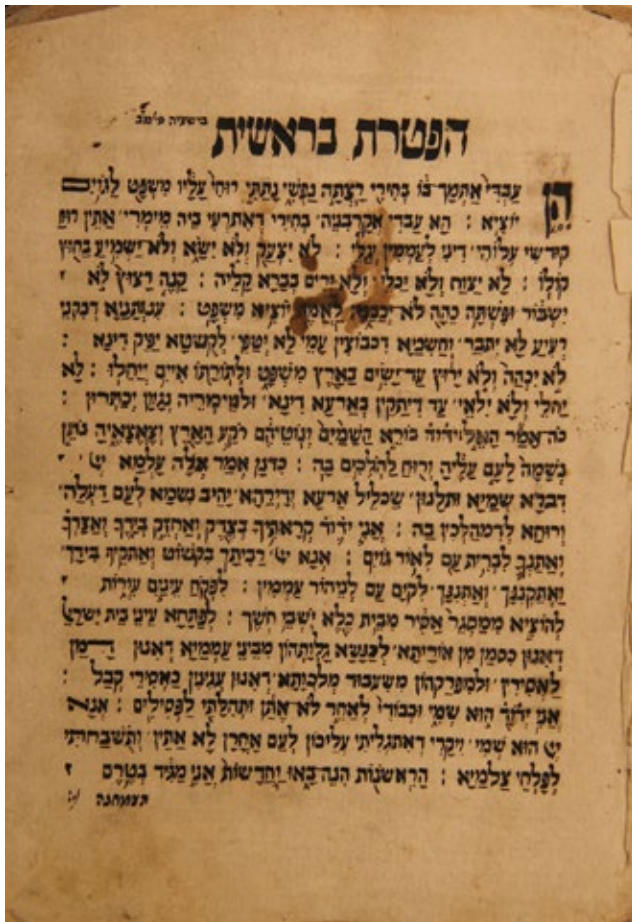 הפטרת בראשית בישעיה סי׳ מב
הן עבדי אתמך בו בחירי רצתה נפשי נתתי רוחי עליו משפט לגוים
יוציא : הא עבדי אקרבניה בחירי דאתרעי ביה מימרי אתין רוח
קודשי עלוהי דיני לעממין יגלי : לא יצעק ולא ישא ולא ישמיע בחוץ
קולו : לא יצוח ולא יכלי ולא ירים בברא קליה : קנה רצוץ לא
ישבור ופשתה כהה לא יכבנה לאמת יוציא משפט : ענותניא דכקני
רעיע לא יתבר וחשכיא דכבוצין עמי לא יטפי לקושטא יפיק דינא :
לא יכהה ולא ירוץ עד ישים בארץ משפט ולתורתו איים ייחלו : לא
יהלי ולא ילאי עד דיתקין בארעא דינא ולאוריתיה נגוון יכתרון :
כה אמר האל יהוה בורא השמים ונוטיהם רקע הארץ וצאצאיה נתן
נשמה לעם עליה ורוח להולכים בה : כדנן אמר אלה עלמא יי
דברא שמיא ותלנון שכליל ארעא ודירהא יהיב נשמא לעם דעלה
ורוחא לדמהלכין בה : אני יהוה קראתיך בצדק ואחזק בידך ואצרך
ואתנך לברית עם לאור גוים : אנא יי רביתך בקשוט ואתקיף בידך
ואתקננך ואתננך לקים עם לניהור עממין : לפקח עינים עורות
להוציא ממסגר אסיר מבית כלא יושבי חשך : לפתחא עיני בית ישראל
דאנון כסמן מן אוריתא לכנשא גלותהון מביני עממיא דאנון דמן
לאסירין ולמפרקהון משעבוד מלכותא דאנון עגינין כאסירי קבל :
אני יהוה הוא שמי וכבודי לאחר לא אתן ותהלתי לפסילים : אנא
יי הוא שמי ויקרי דאתגליתי עליכון לעם אחרן לא אתין ותשבחתי
לפלחי צלמיא : הראשנות הנה באו וחדשות אני מגיד בטרם
תצמחנה